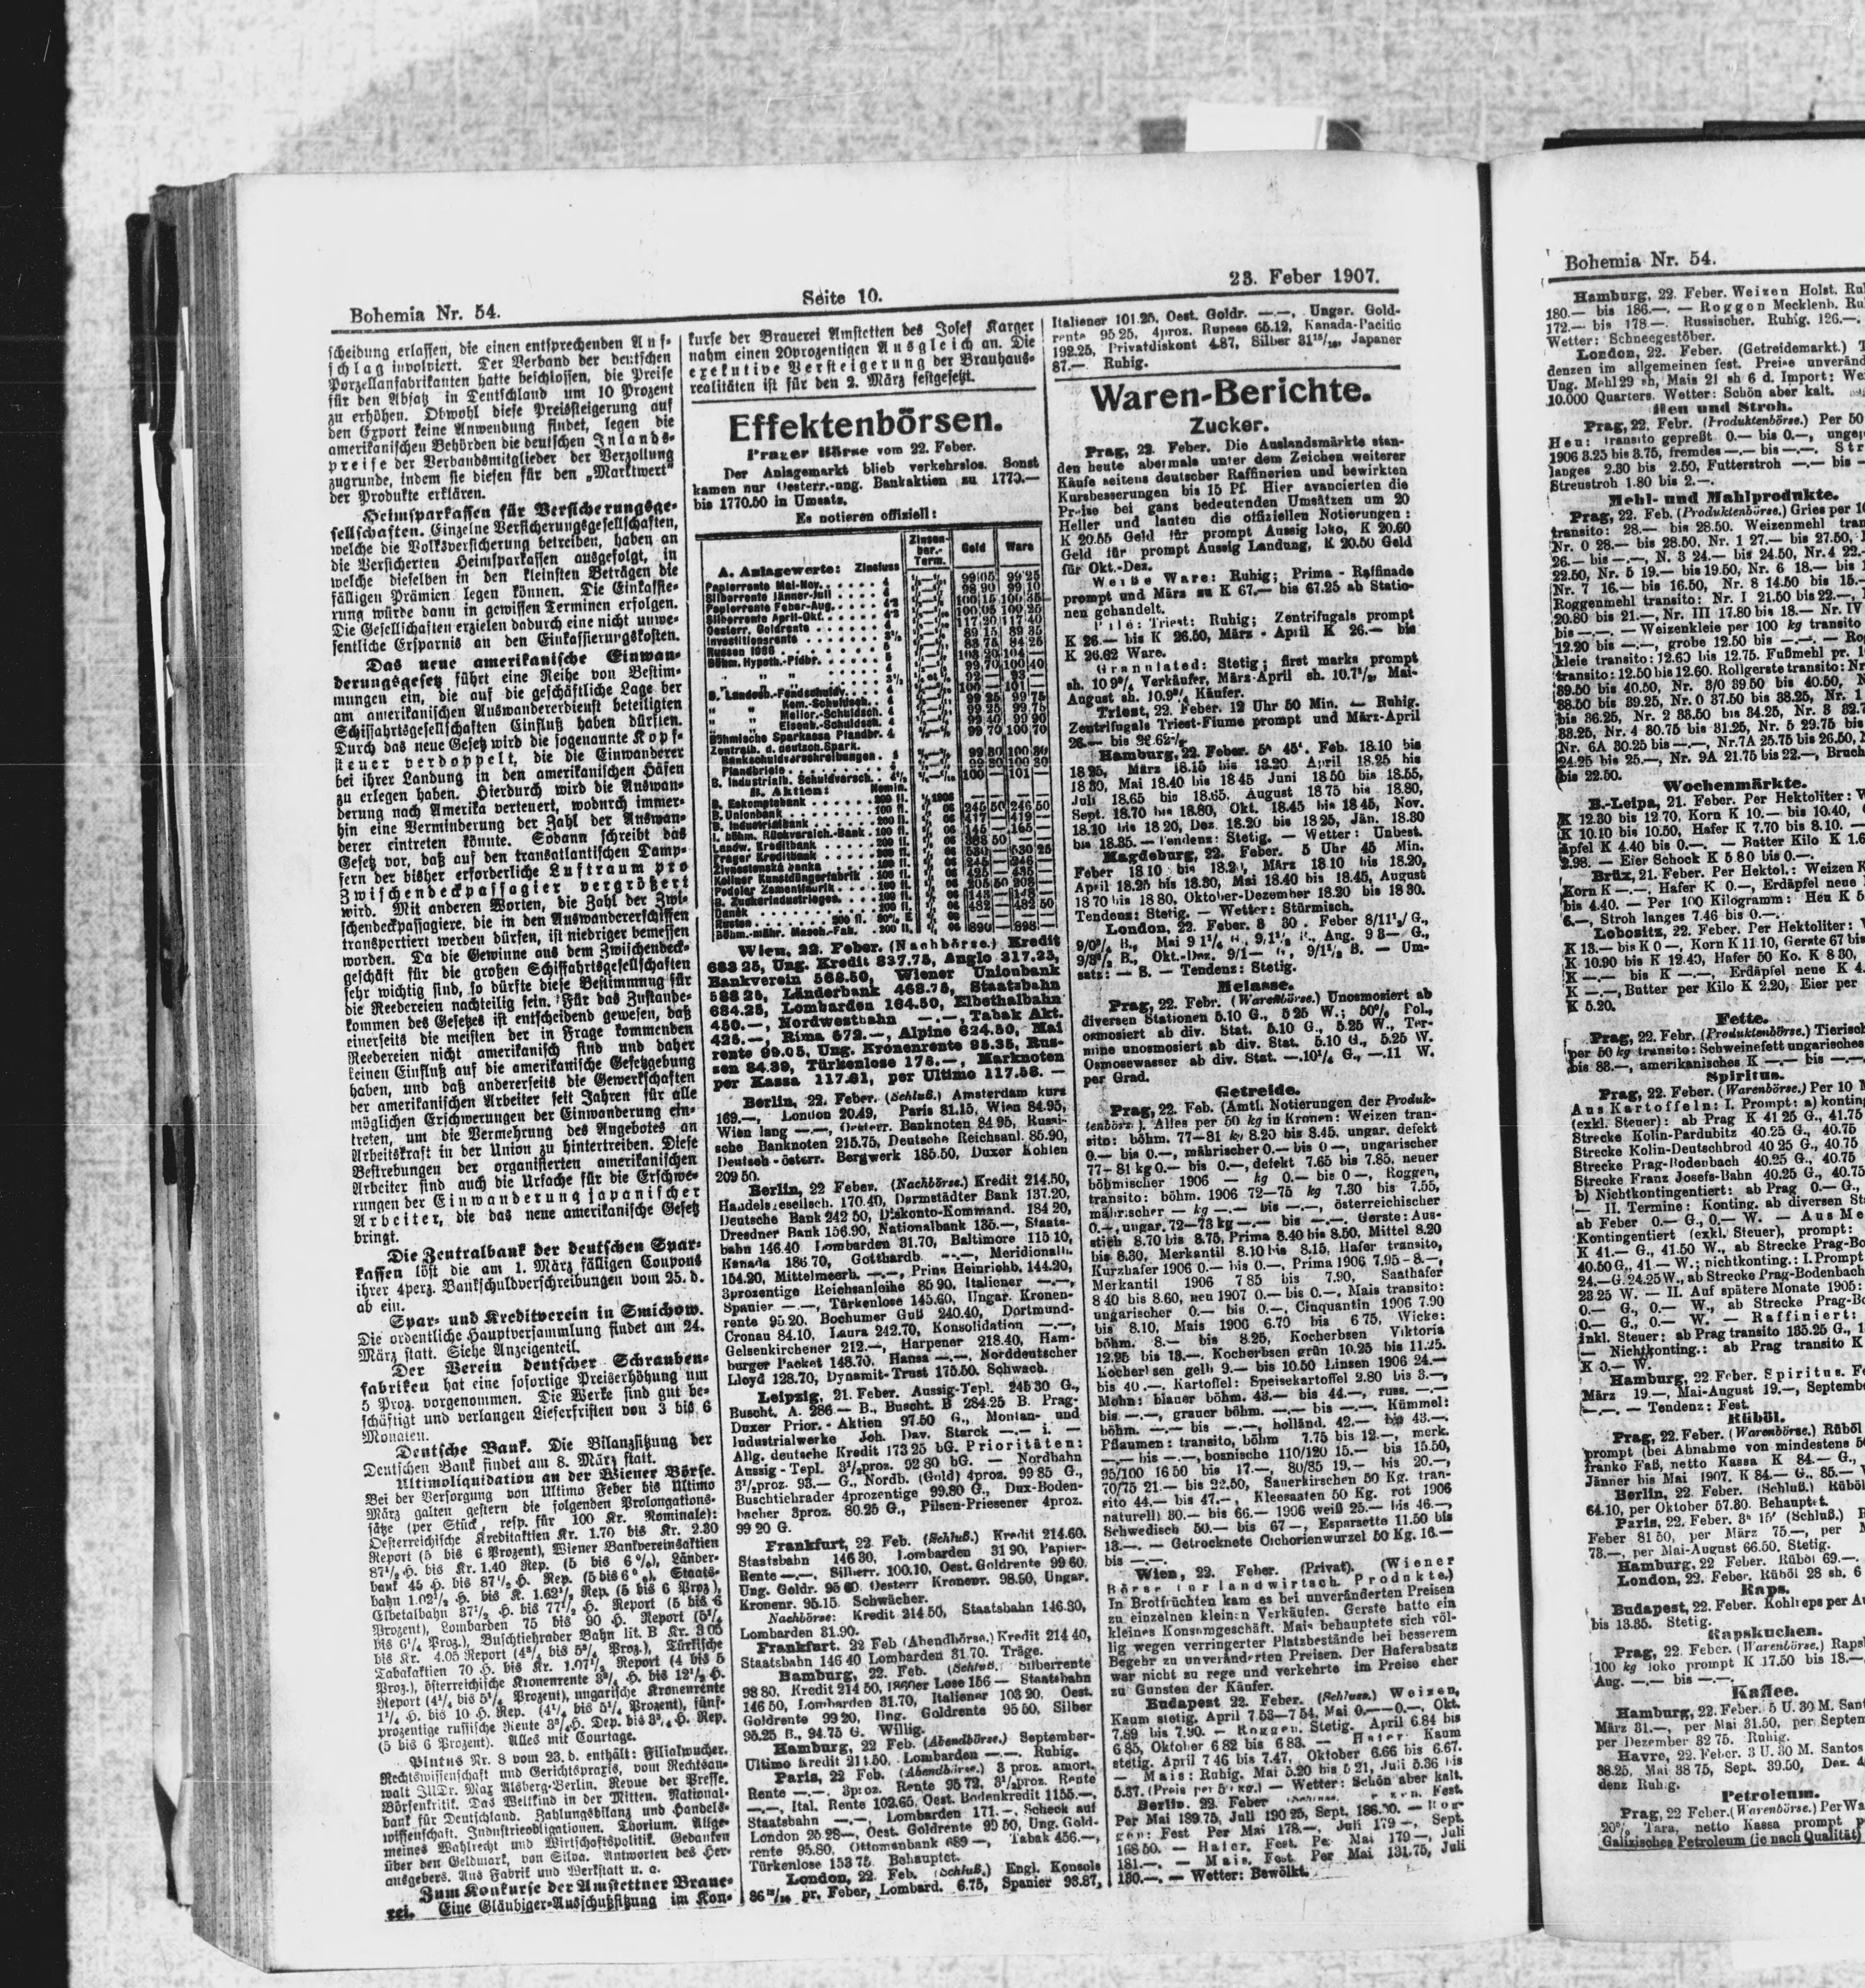 Bohemia Nr. 54.
Seite 10.
23. Feber 1907.
scheidung erlassen, die einen entsprechenden Auf-
schlag involviert. Der Verband der deutschen
Porzellanfabrikanten hatte beschlossen, die Preise
für den Absatz in Deutschland um 10 Prozent
zu erhöhen. Obwohl diese Preissteigerung auf
den Export keine Anwendung findet, legen die
amerikanischen Behörden die deutschen Inlands-
preise der Verbandsmitglieder der Verzollung
zugrunde, indem sie diesen für den „Marktwert"
der Produkte erklären.
Heimsparkassen für Versicherungsge-
sellschaften. Einzelne Versicherungsgesellschaften,
welche die Volksversicherung betreiben, haben an
die Versicherten Heimsparkassen ausgefolgt, in
welche dieselben in den kleinsten Beträgen die
fälligen Prämien legen können. Die Einkassie-
rung würde dann in gewissen Terminen erfolgen.
Die Gesellschaften erzielen dadurch eine nicht unwe-
sentliche Ersparnis an den Einkassierungskosten.
Das neue amerikanische Einwan-
derungsgesetz führt eine Reihe von Bestim-
mungen ein, die auf die geschäftliche Lage der
am amerikanischen Auswandererdienst beteiligten
Schiffahrtsgesellschaften Einfluß haben dürften.
Durch das neue Gesetz wird die sogenannte Kopf-
steuer verdoppelt, die die Einwanderer
bei ihrer Landung in den amerikanischen Häfen
zu erlegen haben. Hierdurch wird die Auswan-
derung nach Amerika verteuert, wodurch immer-
hin eine Verminderung der Zahl der Auswan-
derer eintreten könnte. Sodann schreibt das
Gesetz vor, daß auf den transatlantischen Damp-
fern der bisher erforderliche Luftraum pro
Zwischendeckpassagier vergrößert
wird. Mit anderen Worten, die Zahl der Zwi-
schendeckpassagiere, die in den Auswandererschiffen
transportiert werden dürfen, ist niedriger bemessen
worden. Da die Gewinne aus dem Zwischendeck-
geschäft für die großen Schiffahrtsgesellschaften
sehr wichtig sind, so dürfte diese Bestimmung für
die Reedereien nachteilig sein. Für das Zustande-
kommen des Gesetzes ist entscheidend gewesen, daß
einerseits die meisten der in Frage kommenden
Reedereien nicht amerikanisch sind und daher
keinen Einfluß auf die amerikanische Gesetzgebung
haben, und daß andererseits die Gewerkschaften
der amerikanischen Arbeiter seit Jahren für alle
möglichen Erschwerungen der Einwanderung ein-
treten, um die Vermehrung des Angebotes an
Arbeitskraft in der Union zu hintertreiben. Diese
Bestrebungen der organisierten amerikanischen
Arbeiter sind auch die Ursache für die Erschwe-
rungen der Einwanderung japanischer
Arbeiter, die das neue amerikanische Gesetz
bringt.
Die Zentralbank der deutschen Spar-
kassen löst die am 1. März fälligen Coupons
ihrer 4perz. Bankschuldverschreibungen vom 25. d.
ab ein.
Spar- und Kreditverein in Smichow.
Die ordentliche Hauptversammlung findet am 24.
März statt. Siehe Anzeigenteil.
Der Verein deutscher Schrauben-
fabriken hat eine sofortige Preiserhöhung um
5 Proz. vorgenommen. Die Werke sind gut be-
schäftigt und verlangen Lieferfristen von 3 bis 6
Monaten.
Deutsche Bank. Die Bilanzsitzung der
Deutschen Bank findet am 8. März statt.
Ultimoliquidation an der Wiener Börse.
Bei der Versorgung von Ultimo Feber bis Ultimo
März galten gestern die folgenden Prolongations-
sätze (per Stück, resp. für 100 Kr. Nominale):
Oesterreichische Kreditaktien Kr. 1.70 bis Kr. 2.30
Report (5 bis 6 Prozent), Wiener Bankvereinsaktien
87½ H. bis Kr. 1.40 Rep. (5 bis 6 %), Länder-
bank 45 H. bis 87½ H. Rep. (5 bis 6 %), Staats-
bahn 1.02½ H. bis K. 1.62½ Rep. (5 bis 6 Proz),
Elbetalbahn 37½ H. bis 77½ H. Report (5 bis 6
Prozent), Lombarden 75 bis 90 H. Report (5¼
bis 6¼ Proz.), Buschtiehrader Bahn lit. B Kr. 3 05
bis Kr. 4.05 Report Proz.), Türkische
Tabakaktien 70 H. bis Kr. 1.07½ Report (4 bis 5
Proz.), österreichische Kronenrente H. bis 12½ H.
Report (4¼ bis 5¼ Prozent), ungarische Kronenrente
1¼ H. bis 10 H. Rep. (4¼ bis 5¼ Prozent), fünf-
prozentige russische Rente H. Dep. bis H. Rep.
(5 bis 6 Prozent). Alles mit Courtage.
Plutus Nr. 8 vom 23. d. enthält: Filialwucher.
Rechtswissenschaft und Gerichtspraxis, vom Rechtsan-
walt JUDr. Max Alsberg-Berlin. Revue der Presse.
Börsenkritik. Das Weltkind in der Mitten. National-
bank für Deutschland. Zahlungsbilanz und Handels-
wissenschaft. Industrieobligationen. Thorium. Allge-
meines Wahlrecht und Wirtschaftspolitik. Gedanken
über den Geldmarkt, von Silva. Antworten des Her-
ausgebers. Aus Fabrik und Werkstatt u. a.
Zum Konkurse der Amstettner Braue-
rei. Eine Gläubiger-Ausschußsitzung im Kon-
kurse der Brauerei Amstetten des Josef Karger
nahm einen 20prozentigen Ausgleich an. Die
exekutive Versteigerung der Brauhaus-
realitäten ist für den 2. März festgesetzt.
Effektenbörsen.
Prager Börse vom 22. Feber.
Der Anlagemarkt blieb verkehrslos. Sonst
kamen nur Oesterr.-ung. Bankaktien zu 1770.—
bis 1770.50 in Umsatz.
Es notieren offiziell:
Zinsen-ber.-Term. Geld Ware
A. Anlagewerte: Zinsfuss
Papierrente Mai-Nov. 99 05 99 25
Silberrente Jänner-Juli 98 90 99 10
Papierrente Feber-Aug.
Silberrente April-Okt. 100 05 100 25
Oesterr. Goldrente 117 20 117 40
Investitionsrente 89 15 89 35
Russen 1906
Böhm. Hypoth.-Pfdbr.
B. Landesb.-Fondschuldv.
" " Kom.-Schuldsch.
" " Melior.-Schuldsch.
" " Eisenb.-Schuldsch.
Böhmische Sparkassa Pfandbr. 4
Zentralb. d. deutsch. Spark.
Bankschuldverschreibungen
Pfandbriefe
B. Industrialb. Schuldversch.
B. Aktien: Nomin.
B. Eskomptebank
B. Unionbank 245 50 246 50
B. Industrialbank
I. böhm. Rückversich.-Bank
Landw. Kreditbank
Prager Kreditbank
Živnostenská banka
Kolliner Kunstdüngerfabrik
Podoler Zementfabrik
B. Zuckerindustrieges.
Daněk
Rusten
Böhm.-mähr. Masch.-Fab. 890 — 898 —
Wien, 22. Feber. (Nachbörse.) Kredit
683 25, Ung. Kredit 837.75, Anglo 317.25,
Bankverein 568.50, Wiener Unionbank
588 25, Länderbank 468.75, Staatsbahn
684.25, Lombarden 164.50, Elbethalbahn
450.—, Nordwestbahn —.—, Tabak Akt.
425.—, Rima 572.—, Alpine 624.50, Mai
rente 99.05, Ung. Kronenrente 95.35, Rus-
sen 84.30, Türkenlose 175.—, Marknoten
per Kassa 117.61, per Ultimo 117.58. —
Berlin, 22. Feber. (Schluß.) Amsterdam kurs
169.—, London 20.49, Paris 81.15, Wien 84.95,
Wien lang —.—, Oesterr. Banknoten 84 95, Russi-
sche Banknoten 215.75, Deutsche Reichsanl. 85.90,
Deutsch-österr. Bergwerk 185.50, Duxer Kohlen
209 50.
Berlin, 22 Feber. (Nachbörse.) Kredit 214.50,
Handelsgesellsch. 170.40, Darmstädter Bank 137.20,
Deutsche Bank 242 50, Diskonto-Kommand. 184 20,
Dresdner Bank 156.90, Nationalbank 135.—, Staats-
bahn 146.40 Lombarden 31.70, Baltimore 115 10,
Kanada 186 70, Gotthardb. —.—, Meridionalb.
154.20, Mittelmeerb. —.—, Prinz Heinrichb. 144.20,
3prozentige Reichsanleihe 85 90. Italiener —.—,
Spanier —.—, Türkenlose 145.60, Ungar. Kronen-
rente 95 20, Bochumer Guß 240.40, Dortmund-
Cronau 84.10, Laura 242.70, Konsolidation —.—,
Gelsenkirchener 212.—, Harpener 218.40, Ham-
burger Packet 148.70, Hansa —.—, Norddeutscher
Lloyd 128.70, Dynamit-Trust 175.50. Schwach.
Leipzig, 21. Feber. Aussig-Tepl. 245 30 G.,
Buscht. A. 286.— B., Buscht. B 284.25 B. Prag-
Duxer Prior.-Aktien 97.50 G., Montan- und
Industrialwerke Joh. Dav. Starck —.— i. —
Allg. deutsche Kredit 173 25 bG. Prioritäten:
Aussig-Tepl. 3½proz. 92 80 bG. — Nordbahn
3½proz. 93.— G., Nordb. (Gold) 4proz. 99 85 G.,
Buschtiehrader 4prozentige 99.80 G., Dux-Boden-
bacher 3proz. 80.25 G., Pilsen-Priesener 4proz.
99 20 G.
Frankfurt, 22. Feb. (Schluß.) Kredit 214.60.
Staatsbahn 146 30, Lombarden 31 90, Papier-
Rente —.—, Silberr. 100.10, Oest. Goldrente 99 60.
Ung. Goldr. 95 60 Oesterr Kronenr. 98.50, Ungar.
Kronenr. 95.15. Schwächer.
Nachbörse: Kredit 214 50, Staatsbahn 146.30,
Lombarden 31.90.
Frankfurt. 22 Feb (Abendbörse.) Kredit 214 40,
Staatsbahn 146 40 Lombarden 31.70. Träge.
Hamburg, 22. Feb. (Schluß.) Silberrente
98 80, Kredit 214 50, 1860er Lose 156 — Staatsbahn
146 50, Lombarden 31.70, Italiener 103 20, Oest.
Goldrente 99 20, Ung. Goldrente 95 50, Silber
95.25 B., 94.75 G. Willig.
Hamburg, 22 Feb. (Abendbörse.) September-
Ultimo Kredit 214.50. Lombarden —.—. Ruhig.
Paris, 22 Feb. (Abendbörse.) 3 proz. amort.
Rente —.—. 3proz. Rente 95 72, 3½proz. Rente
—.—, Ital. Rente 102.65, Oest. Bodenkredit 1155.—,
Staatsbahn —.—, Lombarden 171.—, Scheck auf
London 25 28—, Oest. Goldrente 99 50, Ung. Gold-
rente 95.80, Ottomanbank 689 —, Tabak 456.—,
Türkenlose 153 75. Behauptet.
London, 22. Feb. (Schluß.) Engl. Konsols
pr. Feber, Lombard. 6.75, Spanier 93.87,
Italiener 101.25, Oest. Goldr. —.—, Ungar. Gold-
rente 95 25, 4proz. Rupees 65.12, Kanada-Pacific
192.25, Privatdiskont 4.87, Silber 31¹⁵/₁₆, Japaner
87.—. Ruhig.
Waren-Berichte.
Zucker.
Prag, 22. Feber. Die Auslandsmärkte stan-
den heute abermals unter dem Zeichen weiterer
Käufe seitens deutscher Raffinerien und bewirkten
Kursbesserungen bis 15 Pf. Hier avancierten die
Preise bei ganz bedeutenden Umsätzen um 20
Heller und lauten die offiziellen Notierungen:
K 20.55 Geld für prompt Aussig loko, K 20.60
Geld für prompt Aussig Landung, K 20.50 Geld
für Okt.-Dez.
Weiße Ware: Ruhig; Prima-Raffinade
prompt und März zu K 67.— bis 67.25 ab Statio-
nen gehandelt.
Pilé: Triest: Ruhig; Zentrifugals prompt
K 26.— bis K 26.50, März-April K 26.— bis
K 26.62 Ware.
Granulated: Stetig; first marks prompt
sh. 10 9¾ Verkäufer, März-April sh. 10.7½, Mai-
August sh. Käufer.
Triest, 22. Feber. 12 Uhr 50 Min. — Ruhig.
Zentrifugals Triest-Fiume prompt und März-April
26.— bis 26.62½.
Hamburg, 22. Feber. 5ʰ 45'. Feb. 18.10 bis
18 25, März 18.15 bis 18.20 April 18.25 bis
18 30, Mai 18.40 bis 18 45 Juni 18 50 bis 18.55,
Juli 18.65 bis 18.65. August 18 75 bis 18.80,
Sept. 18.70 bis 18.80, Okt. 18.45 bis 18 45, Nov.
18.10 bis 18 20, Dez. 18.20 bis 18 25, Jän. 18.30
bis 18.35. — Tendenz: Stetig. — Wetter: Unbest.
Magdeburg, 22. Feber. 5 Uhr 45 Min.
Feber 18 10 bis 18.20, März 18 10 bis 18.20,
April 18.25 bis 18.30, Mai 18.40 bis 18.45, August
18 70 bis 18 80, Oktober-Dezember 18.20 bis 18 30.
Tendenz: Stetig. — Wetter: Stürmisch.
London, 22. Feber. 8 30. Feber G.,
B., Mai Aug. 9 3— G.,
B., Okt.-Dez. 9/1— 9/1½ B. — Um-
satz: — S. — Tendenz: Stetig.
Melasse.
Prag, 22. Febr. (Warenbörse.) Unosmosiert ab
diversen Stationen 5.10 G., 5 25 W.; 50% Pol.,
osmosiert ab div. Stat. 5.10 G., 5.25 W., Ter-
mine unosmosiert ab div. Stat. 5.10 G., 5.25 W.
Osmosewasser ab div. Stat. —.10¼ G., —.11 W.
per Grad.
Getreide.
Prag, 22. Feb. (Amtl. Notierungen der Produk-
tenbörse.). Alles per 50 kg in Kronen: Weizen tran-
sito: böhm. 77—81 kg 8.20 bis 8.45. ungar. defekt
0.— bis 0.—, mährischer 0.— bis 0 —, ungarischer
77—81 kg 0.— bis 0.—, defekt 7.65 bis 7.85. neuer
böhmischer 1906 — kg 0.— bis 0 —, Roggen,
transito: böhm. 1906 72—75 kg 7.30 bis 7.55,
mährischer — kg —.— bis —.—, österreichischer
0.—, ungar. 72—73 kg —.— bis —.—. Gerste: Aus-
stich 8.70 bis 8.75, Prima 8.40 bis 8.50, Mittel 8.20
bis 8.30, Merkantil 8.10 bis 8.15, Hafer transito,
Kurzhafer 1906 0.— bis 0.—, Prima 1906 7.95 - 8.—,
Merkantil 1906 7 85 bis 7.90, Saathafer
8 40 bis 8.60, neu 1907 0.— bis 0.—. Mais transito:
ungarischer 0.— bis 0.—, Cinquantin 1906 7.90
bis 8.10, Mais 1906 6.70 bis 6 75, Wicke:
böhm. 8.— bis 8.25, Kocherbsen Viktoria
12.25 bis 13.—. Kocherbsen grün 10.25 bis 11.25.
Kocherbsen gelb 9.— bis 10.50 Linsen 1906 24.—
bis 40.—. Kartoffel: Speisekartoffel 2.80 bis 3.—,
Mohn: blauer böhm. 43.— bis 44.—, russ. —.—
bis —.—, grauer böhm. —.— bis —.—. Kümmel:
böhm. —.— bis —.—, holländ. 42.— bis 43.—.
Pflaumen: transito, böhm 7.75 bis 12.—, merk.
—.— bis —.—, bosnische 110/120 15.— bis 15.50,
95/100 16 50 bis 17.—, 80/85 19.— bis 20.—,
70/75 21.— bis 22.50, Sauerkirschen 50 Kg. tran-
sito 44.— bis 47.—, Kleesaaten 50 Kg. rot 1906
naturell 30.— bis 66.— 1906 weiß 25.— bis 46.—,
Schwedisch 50.— bis 67 —, Esparsette 11.50 bis
13.—. — Getrocknete Cichorienwurzel 50 Kg. 16.—
bis —.—.
Wien, 22. Feber. (Privat). (Wiener
Börse für landwirtsch. Produkte.)
In Brotfrüchten kam es bei unveränderten Preisen
zu einzelnen kleinen Verkäufen. Gerste hatte ein
kleines Konsumgeschäft. Mais behauptete sich völ-
lig wegen verringerter Platzbestände bei besserem
Begehr zu unveränderten Preisen. Der Haferabsatz
war nicht zu rege und verkehrte im Preise eher
zu Gunsten der Käufer.
Budapest 22. Feber. (Schluss.) Weizen,
Kaum stetig. April 7.53—7 54, Mai 0.——0.—, Okt.
7.89 bis 7.90. — Roggen. Stetig. April 6.84 bis
6 85, Oktober 6 82 bis 6 83. — Hafer: Kaum
stetig. April 7 46 bis 7.47, Oktober 6.66 bis 6.67.
— Mais: Ruhig. Mai 5.20 bis 5 21, Juli 5.36 bis
5.37. (Preis per 50 kg.) — Wetter: Schön aber kalt.
Berlin. 22. Feber Fest.
Per Mai 189.75, Juli 190 25, Sept. 186.50. — Rog-
gen: Fest Per Mai 178.—, Juli 179 —, Sept.
168 50. — Hafer. Fest. Per Mai 179—, Juli
181.—. — Mais. Fest. Per Mai 131.75, Juli
130.—. — Wetter: Bewölkt.
Bohemia Nr. 54.
Hamburg, 22. Feber. Weizen Holst.
180.— bis 186.—. — Roggen Mecklenb.
172.— bis 178.—. Russischer. Ruhig. 126.—.
Wetter: Schneegestöber.
London, 22. Feber. (Getreidemarkt.)
denzen im allgemeinen fest. Preise
Ung. Mehl 29 sh, Mais 21 sh 6 d. Import:
10.000 Quarters. Wetter: Schön aber kalt.
Heu und Stroh.
Prag, 22. Febr. (Produktenbörse.) Per 50
Heu: transito gepreßt 0.— bis 0.—,
1906 3.25 bis 3.75, fremdes —.— bis —.—.
langes 2.30 bis 2.50, Futterstroh —.— bis —
Streustroh 1.80 bis 2.—.
Mehl- und Mahlprodukte.
Prag, 22. Feb. (Produktenbörse.) Gries per
transito: 28.— bis 28.50. Weizenmehl
Nr. 0 28.— bis 28.50, Nr. 1 27.— bis 27.50,
26.— bis —.—, N. 3 24.— bis 24.50, Nr. 4 22.—
22.50, Nr. 5 19.— bis 19.50, Nr. 6 18.— bis
Nr. 7 16.— bis 16.50, Nr. 8 14.50 bis 15.—
Roggenmehl transito: Nr. I 21.50 bis 22.—,
20.80 bis 21.—, Nr. III 17.80 bis 18.— Nr. IV
bis —.—. — Weizenkleie per 100 kg transito
12.20 bis —.—, grobe 12.50 bis —.—. —
kleie transito: 12.60 bis 12.75. Fußmehl pr.
transito: 12.50 bis 12.60. Rollgerste transito:
39.50 bis 40.50, Nr. 3/0 39.50 bis 40.50,
38.50 bis 39.25, Nr. 0 37.50 bis 38.25, Nr. 1
bis 36.25, Nr. 2 33.50 bis 34.25, Nr. 3
33.25, Nr. 4 30.75 bis 31.25, Nr. 5 29.75 bis
Nr. 6A 30.25 bis —.—, Nr. 7A 25.75 bis 26.50,
24.25 bis 25.—, Nr. 9A 21.75 bis 22.—,
bis 22.50.
Wochenmärkte.
B.-Leipa, 21. Feber. Per Hektoliter:
K 12.30 bis 12.70, Korn K 10.— bis 10.40,
K 10.10 bis 10.50, Hafer K 7.70 bis 8.10. —
äpfel K 4.40 bis 0.—. — Butter Kilo K
2.98. — Eier Schock K 5 80 bis 0.—.
Brüx, 21. Feber. Per Hektol.: Weizen
Korn K —.—, Hafer K 0.—, Erdäpfel neue
bis 4.40. — Per 100 Kilogramm: Heu K
6.—, Stroh langes 7.46 bis 0.—.
Lobositz, 22. Feber. Per Hektoliter:
K 13.— bis K 0 —, Korn K 11.10, Gerste 67 bis
K 10.90 bis K 12.40, Hafer 50 Ko. K 8 30,
K —.— bis K —.—, Erdäpfel neue K
K —.—, Butter per Kilo K 2.20, Eier per
K 5.20.
Fette.
Prag, 22. Febr. (Produktenbörse.)
per 50 kg transito: Schweinefett ungarisches
bis 88.—, amerikanisches K —.— bis —.—
Spiritus.
Prag, 22. Feber. (Warenbörse.) Per 10
Aus Kartoffeln: I. Prompt: a)
(exkl. Steuer): ab Prag K 41 25 G., 41.75
Strecke Kolin-Pardubitz 40.25 G., 40.75
Strecke Kolin-Deutschbrod 40 25 G., 40.75
Strecke Prag-Bodenbach 40.25 G., 40.75
Strecke Franz Josefs-Bahn 40.25 G.,
b) Nichtkontingentiert: ab Prag 0.— G.,
— II. Termine: Konting. ab diversen
ab Feber 0.— G., 0.— W. — Aus
Kontingentiert (exkl. Steuer), prompt:
K 41.— G., 41.50 W., ab Strecke
40.50 G., 41.— W.; nichtkonting.: I. Prompt
24.—G. 24.25 W., ab Strecke Prag-Bodenbach
23 25 W. — II. Auf spätere Monate 1905:
0.— G., 0.— W., ab Strecke
0.— G., 0.— W. — Raffiniert:
inkl. Steuer: ab Prag transito 135.25 G.,
— Nichtkonting.: ab Prag transito K
K 0.— W.
Hamburg, 22 Feber. Spiritus.
März 19.—, Mai-August 19.—,
—.—. — Tendenz: Fest.
Rüböl.
Prag, 22. Feber. (Warenbörse.) Rüböl
prompt (bei Abnahme von mindestens
franko Faß, netto Kassa K 84.— G.,
Jänner bis Mai 1907. K 84.— G., 85.—
Berlin, 22. Feber. (Schluß.)
64.10, per Oktober 57.80. Behauptet.
Paris, 22. Feber. 3ʰ 15' (Schluß.)
Feber 81 50, per März 75.—, per
73.—, per Mai-August 66.50. Stetig.
Hamburg, 22 Feber. Rüböl 69.—.
London, 22. Feber. Rüböl 28 sh. 6
Raps.
Budapest, 22. Feber. Kohlreps per
bis 13.35. Stetig.
Rapskuchen.
Prag, 22. Feber. (Warenbörse.)
100 kg loko prompt K 17.50 bis 18.—
Aug. —.— bis —.—.
Kaffee.
Hamburg, 22. Feber. 5 U. 30 M.
März 31.—, per Mai 31.50, per
per Dezember 32 75. Ruhig.
Havre, 22. Feber. 3 U. 30 M. Santos
38.25, Mai 38 75, Sept. 39.50, Dez.
denz Ruhig.
Petroleum.
Prag, 22 Feber. (Warenbörse.) Per
20% Tara, netto Kassa prompt
Galizisches Petroleum (je nach Qualität)